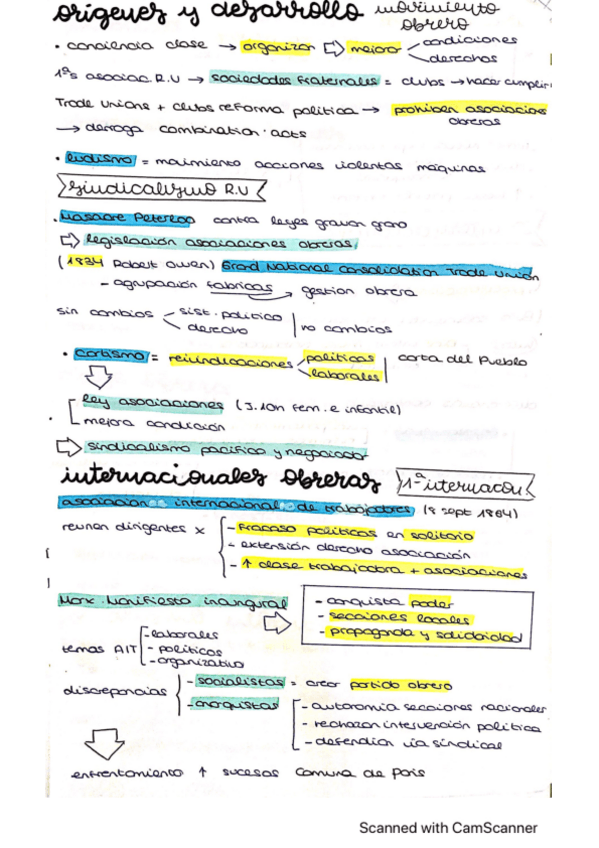 orígenes y desarrollo movimiento obrero
• conciencia clase → organizar ⇨ mejora condiciones
derechos
1ªs asociac. R.U → sociedades fraternales = clubs → hacer cumplir
Trade Unions + clubs reforma política → prohiben asociacions obreras
→ deroga combination acts
• ludismo = movimiento acciones violentas máquinas
sindicalismo R.U
• Masacre Peterloo contra leyes gravan grano
⇨ legislación asociaciones obreras
(1834 Robert Owen) Grand National Consolidation Trade Union
- agrupación fabricas → gestion obrera
sin cambios sist. político | no cambios
derecho
• Cartismo = reivindicaciones políticas | carta del Pueblo
laborales
ley asociaciones (J. 10h fem. e infantil)
mejora condición
⇨ sindicalismo pacífico y negociador
internacionales obreras 1ª internacon
asociacion internacional de trabajadores (8 sept 1864)
reunen dirigentes x - Fracaso políticos en solitario
- extensión derecho asociación
- ↑ clase trabajadora + asociaciones
Marx Manifiesto inaugural
- conquista poder
- secciones locales
- propaganda y solidaridad
temas AIT - laborales
- políticos
- organizativo
discrepancias - socialistas = crear partido obrero
- anarquistas - autonomía secciones nacionales
- rechazan intervención política
- defendían vía sindical
enfrentamiento ↑ sucesos Comuna de París
Scanned with CamScanner